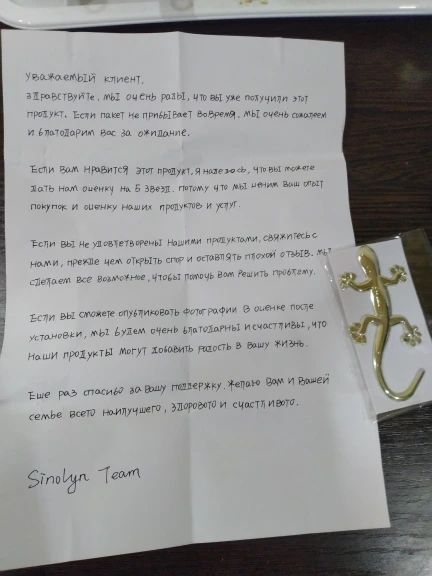 уважаемый клиент,
здравствуйте, мы очень рады, что вы уже получили этот
продукт. Если пакет не прибывает вовремя, мы очень сожалеем
и благодарим вас за ожидание.
Если вам нравится этот продукт, я надеюсь, что вы можете
дать нам оценку на 5 звезд. потому что мы ценим ваш опыт
покупок и оценку наших продуктов и услуг.
Если вы не удовлетворены нашими продуктами, свяжитесь с
нами, прежде чем открыть спор и оставлять плохой отзыв. мы
сделаем все возможное, чтобы помочь вам решить проблему.
Если вы сможете опубликовать фотографии в оценке после
установки, мы будем очень благодарны и счастливы, что
наши продукты могут добавить радость в вашу жизнь.
Еще раз спасибо за вашу поддержку. желаю вам и вашей
семье всего наилучшего, здорового и счастливого.
Sinolyn Team